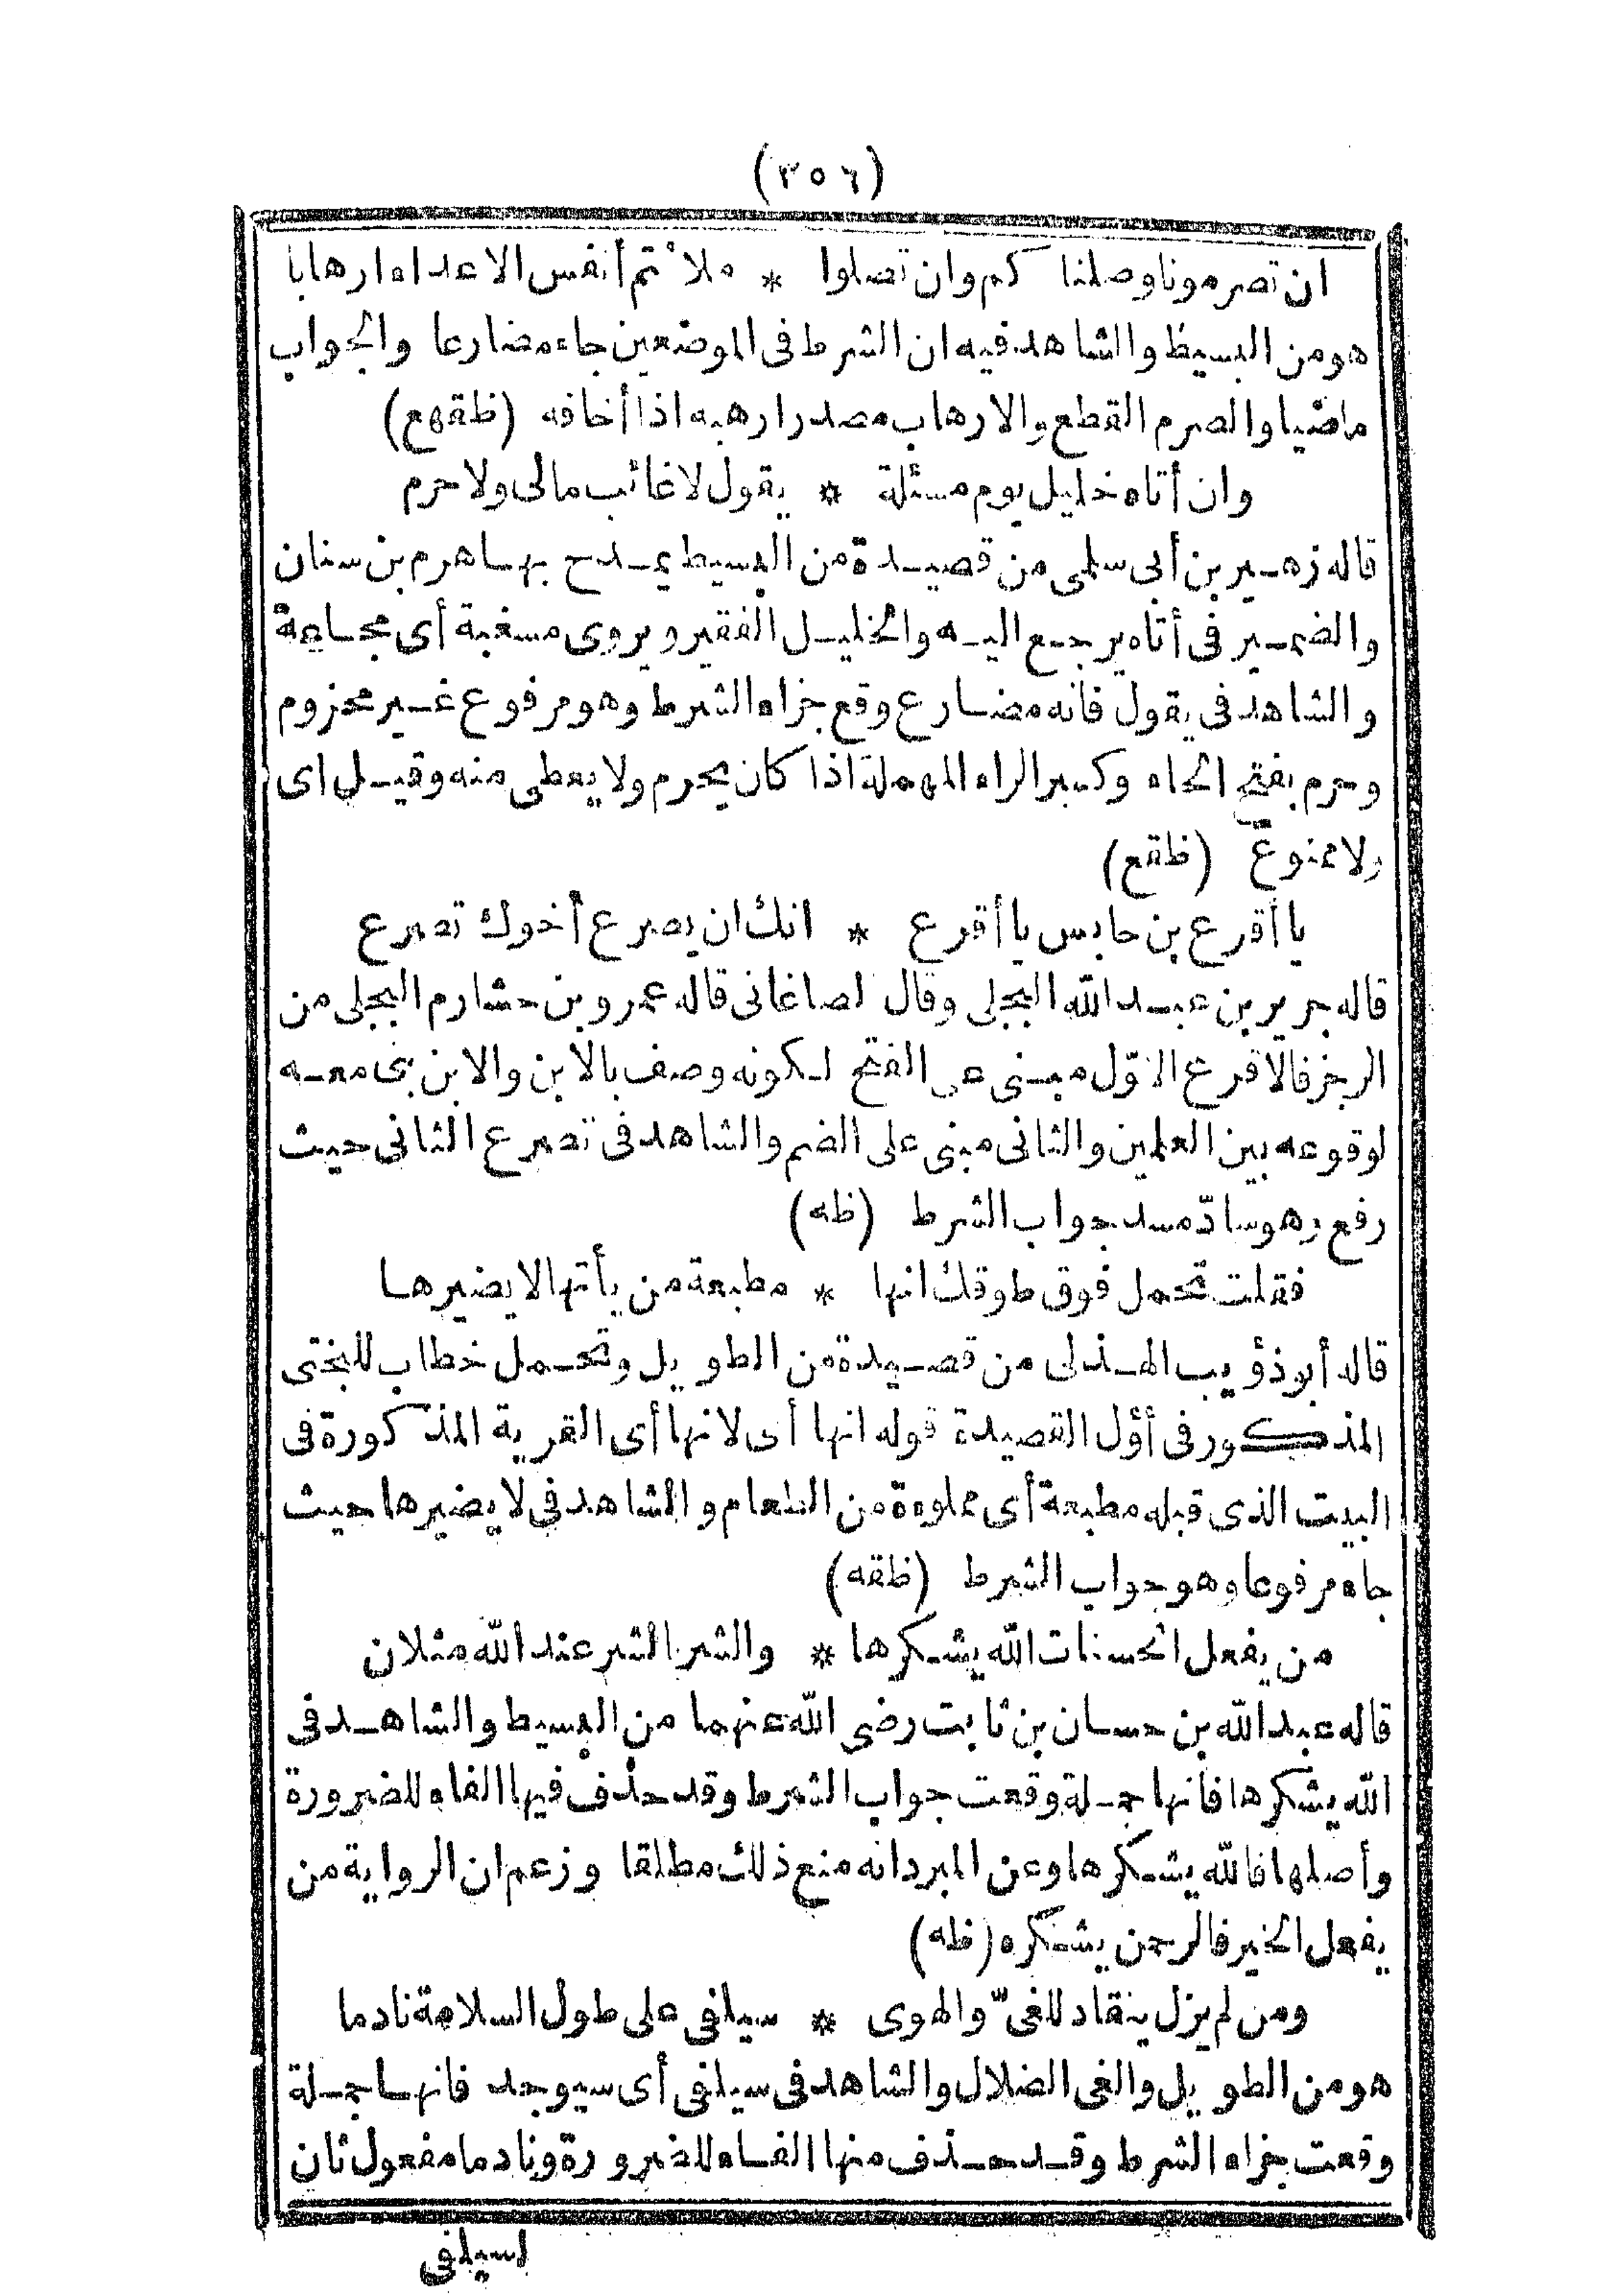 (٣٥٦)
ان تصرمونا وصلناكم وان تصلوا * ملأتم أنفس الاعداء ارهابا
هو من البسيط والشاهد فيه ان الشرط فى الموضعين جاء مضارعا والجواب
ماضيا والصرم القطع والارهاب مصدر ارهبه اذا أخافه (ظقهع)
وان أتاه خليل يوم مسئلة * يقول لا غائب مالى ولا حرم
قاله زهير بن أبى سلمى من قصيدة من البسيط يمدح بها هرم بن سنان
والضمير فى أتاه يرجع اليه والخليل الفقير ويروى مسغبة أى مجاعة
والشاهد فى يقول فانه مضارع وقع جزاء الشرط وهو مرفوع غير مجزوم
وحرم بفتح الحاء وكسر الراء المهملة اذا كان يحرم ولا يعطى منه وقيل اى
ولا ممنوع (ظقع)
يا أقرع بن حابس يا أقرع * انك ان يصرع أخوك تصرع
قاله جرير بن عبد الله البجلى وقال لصاغانى قاله عمرو بن حشارم البجلى من
الرجز فالاقرع الاوّل مبنى على الفتح لكونه وصف بالابن والابن نحا معه
لوقوعه بين العلمين والثانى مبنى على الضم والشاهد فى تصرع الثانى حيث
رفع وهو سادّ مسد جواب الشرط (ظه)
فقلت تحمل فوق طوقك انها * مطبعة من يأتها لا يضيرها
قاله أبو ذؤيب الهذلى من قصيدة من الطويل وتحمل خطاب للبختى
المذكور فى أوّل القصيدة قوله انها أى لانها أى القرية المذكورة فى
البيت الذى قبله مطبعة أى مملوءة من الطعام والشاهد فى لا يضيرها حيث
جاء مرفوعا وهو جواب الشرط (ظقه)
من يفعل الحسنات الله يشكرها * والشر بالشر عند الله مثلان
قاله عبد الله بن حسان بن ثابت رضى الله عنهما من البسيط والشاهد فى
الله يشكرها فانها جملة وقعت جواب الشرط وقد حذف فيها الفاء للضرورة
وأصلها فالله يشكرها وعن المبرد انه منع ذلك مطلقا وزعم ان الرواية من
يفعل الخير فالرحمن يشكره (ظه)
ومن لم يزل ينقاد للغىّ والهوى * سيلفى على طول السلامة نادما
هو من الطويل والغى الضلال والشاهد فى سيلفى أى سيوجد فانها جملة
وقعت جزاء الشرط وقد حذف منها الفاء للضرورة ونادما مفعول ثان
لسيلفى